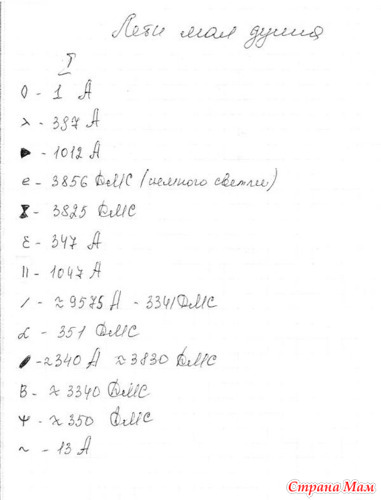 Лети моя душа
I
0 - 1 А
λ - 397 А
▶ - 1012 А
е - 3856 ДМС (немного светлее)
⧗ - 3825 ДМС
ε - 347 А
II - 1047 А
/ - ≈ 9575 А - 3341 ДМС
α - 351 ДМС
- 2340 А ≈ 3830 ДМС
В - ≈ 3340 ДМС
Ψ - ≈ 350 ДМС
~ - 13 А
Страна Мам